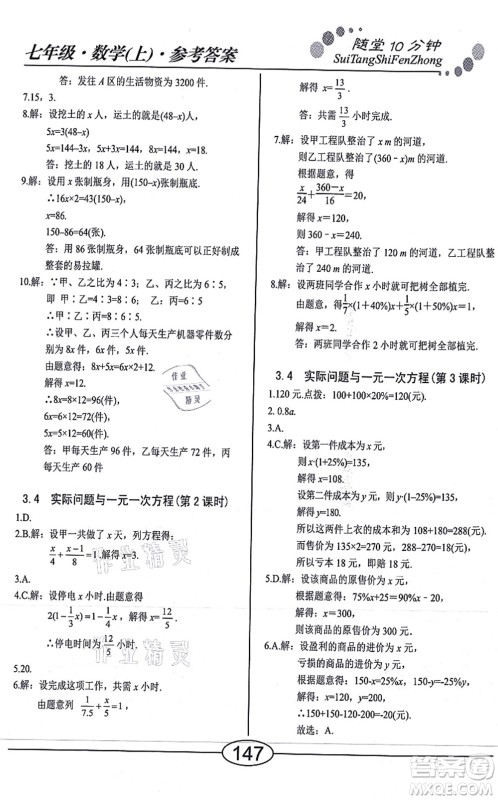 七年级·数学(上)·参考答案
随堂 10 分钟
SuiTangShiFenZhong
答：发往 A 区的生活物资为 3200 件.
7.15，3.
8.解：设挖土的 x 人，运土的就是(48-x)人，
5x=3(48-x)
5x=144-3x，5x+3x=144，8x=144，x=18.
答：挖土的 18 人，运土的 30 人.
9.解：设用 x 张制瓶身，用(150-x)张制瓶底，
∴16x×2=43(150-x)，
x=86.
150-86=64(张).
答：用 86 张制瓶身，用 64 张制瓶底可以制成
整套的易拉罐.
10.解：∵甲、乙之比为 4：3；乙、丙之比为 6：5，
即 甲：乙=8：6；乙：丙=6：5，
∴甲：乙：丙=8：6：5，
∴设甲、乙、丙三人每天生产机器零件数分别为
8x、6x、5x.
由题意得：8x+5x-6x×2=12，
解得：x=12，
8x=8×12=96，
6x=6×12=72，
5x=5×12=60.
答：甲每天生产 96 件，乙每天生产 72 件，丙每
天生产 60 件.
3.4 实际问题与一元一次方程(第 2 课时)
1.D.
2.B.解：设甲一共做了 x 天，列方程得：
x/4+(x-1)/8=1.解得：x=3.
3.A.
4.C.解：设停电 x 小时.
2(1-1/3x)=1-1/4x，解得：x=12/5.
∴停电时间为12/5小时.
5.20.
6.解：设完成这项工作，共需 x 小时.
由题意列 1/7.5+x/5=1，
解得 x=13/3.
答：共需 13/3 小时完成.
7.解：设甲工程队整治了 x m 的河道，
则乙工程队整治了(360-x)m 的河道，
根据题意，得
x/24+(360-x)/16=20，
解得：x=120，
答：甲工程队整治了 120 m 的河道，乙工程队整
治了 240 m 的河道.
8.解：设两班同学合作 x 小时可把树全部植完，
由题意，得1/7×(1+50%)x+1/5×(1+50%)x=1，
解得：x=2.
答：两班同学合作 2 小时可把树全部植完.
3.4 实际问题与一元一次方程(第 3 课时)
1.120 元.点拨：100+100×20%=120(元).
2.0.8a.
3.A.
4.C.解：设第一件成本为 x 元，
则 x·(1+25%)=135，
解得 x=108.
设第二件成本为 y 元，
则 y·(1-25%)=135，
解得 y=180.
所以这两件上衣的成本为 108+180=288(元).
而售价为 135×2=270(元)，288-270=18(元)，
所以亏本 18 元，即赔 18 元.
5.D.解：设该商品的原售价为 x 元，
根据题意得：75%x+25=90%x-20，
解得：x=300，
则该商品的原售价为 300 元.
6.A.解：设盈利的商品的进价为 x 元，
亏损的商品的进价为 y 元，
根据题意得：150-x=25%x，150-y=-25%y，
解得：x=120，y=200，
∴150-120+150-200=-20(元).
故选：A.
147
作业
精灵
作业精灵
作业精灵
答案圈
MXQE.COM